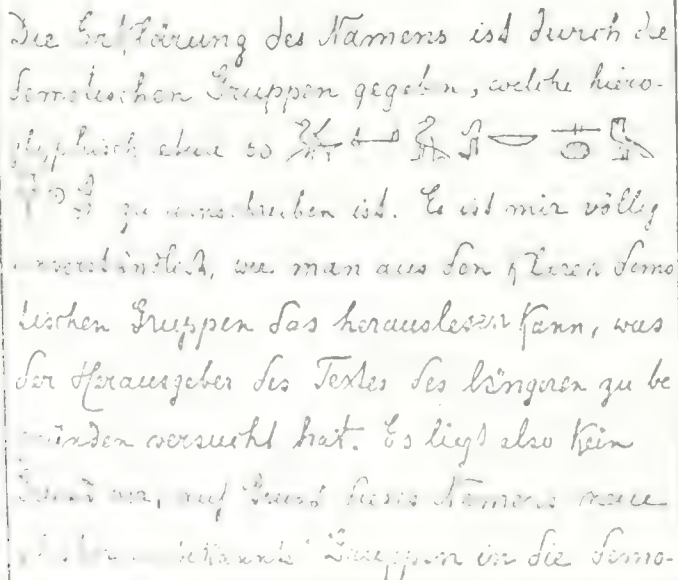 Die Erklärung des Namens ist durch die
demotischen Gruppen gegeben, welche hiero-
glyphisch etwa so
zu umschreiben ist. Es ist mir völlig
unverständlich, wie man aus den klaren demo
tischen Gruppen das herauslesen kann, was
der Herausgeber des Textes des längeren zu be
gründen versucht hat. Es liegt also kein
Grund vor, auf Grund dieses Namens neue
Gruppen in die demo-